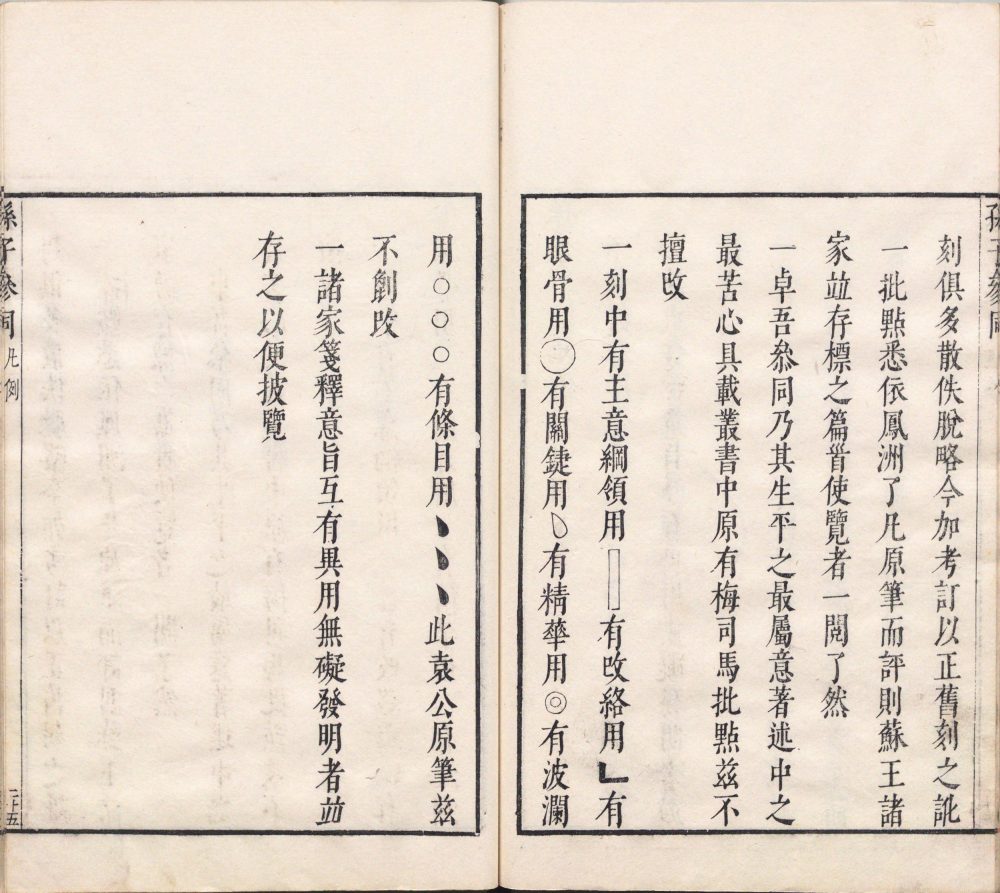 孫子參同
刻俱多散佚脫略今加考訂以正舊刻之訛
一批點悉依鳳洲了凡原筆而評則蘇王諸
家竝存標之篇首使覽者一閱了然
一卓吾叅同乃其生平之最屬意著述中之
最苦心具載叢書中原有梅司馬批點茲不
擅改
一刻中有主意綱領用▯有改絡用┗有
眼骨用◯有關鍵用有精華用◎有波瀾
用○○○有條目用﹅﹅﹅此袁公原筆茲
不創改
一諸家箋釋意旨互有異用無礙發明者竝
存之以便披覽
孫子參同 凡例 二十五